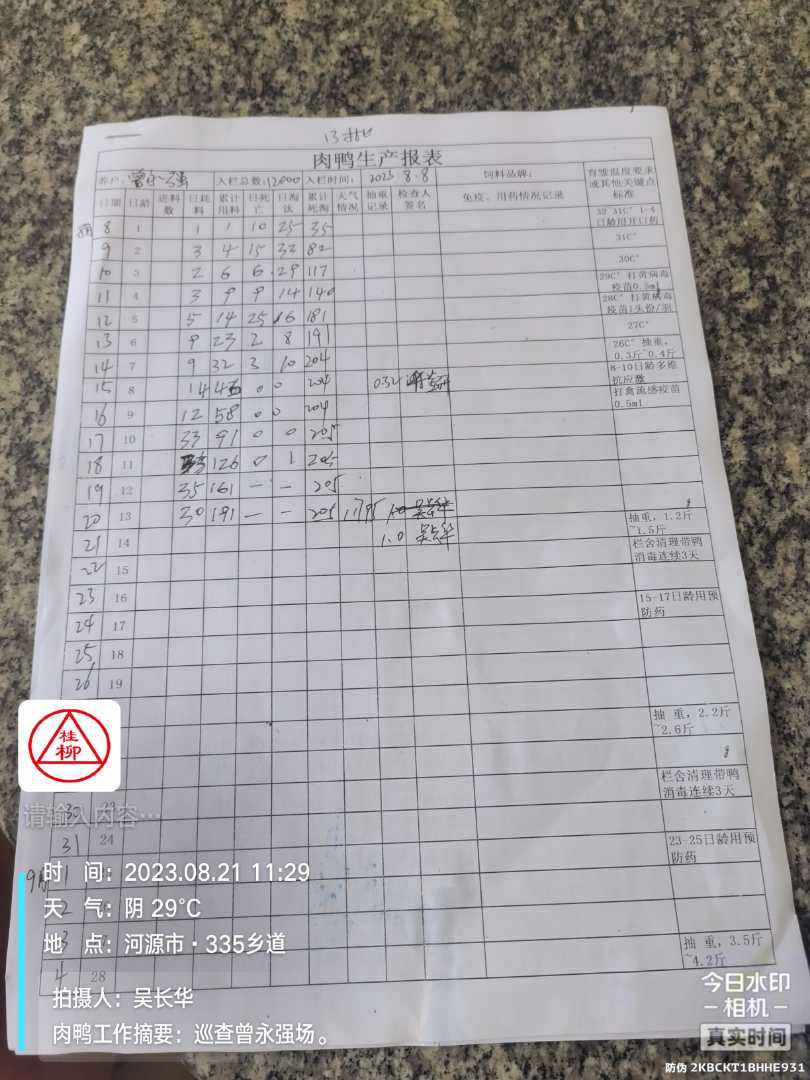 13批
肉鸭生产报表
养户: 曾永强 入栏总数: 12000 入栏时间: 2023 8.8 饲料品牌: 育雏温度要求或其他关键点标准
日期 日龄 进料数 日耗料 累计用料 日死亡 日淘汰 累计死淘 天气情况 抽重记录 检查人签名 免疫、用药情况记录
8月 8 1 1 1 10 25 35 32°31C° 1-4日龄用开口药
9 2 3 4 15 32 82 31C°
10 3 2 6 6 29 117 30C°
11 4 3 9 9 14 140 29C° 打黄病毒疫苗0.5ml
12 5 5 14 25 16 181 28C° 打黄病毒疫苗1头份/羽
13 6 9 23 2 8 191 27C°
14 7 9 32 3 10 204 26C° 抽重,0.3斤~0.4斤
15 8 14 46 0 0 204 032 8-10日龄多维抗应激
16 9 12 58 0 0 204 打禽流感疫苗0.5ml
17 10 33 91 0 0 205
18 11 35 126 0 1 205
19 12 35 161 — — 205
20 13 30 191 — — 205 1795 1.0 吴长华 抽重,1.2斤~1.5斤
21 14 1.0 吴长华 栏舍清理带鸭消毒连续3天
22 15
23 16 15-17日龄用预防药
24 17
25 18
26 19
抽重,2.2斤~2.6斤
栏舍清理带鸭消毒连续3天
31 24 23-25日龄用预防药
9月 1
2
3
4 28 抽重,3.5斤~4.2斤
桂柳
请输入内容…
时 间: 2023.08.21 11:29
天 气: 阴 29℃
地 点: 河源市·335乡道
拍摄人: 吴长华
肉鸭工作摘要: 巡查曾永强场。
今日水印
-相机-
真实时间
防伪 2KBCKT1BHHE931